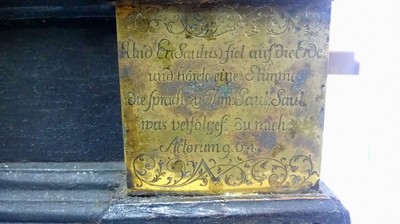 Und Er (Saulus) fiel auf die Erde
und hörde eine Stimme
die sprach zu Ihm Saul Saul
was verfolgest du mich
Actorum 9. v 4.